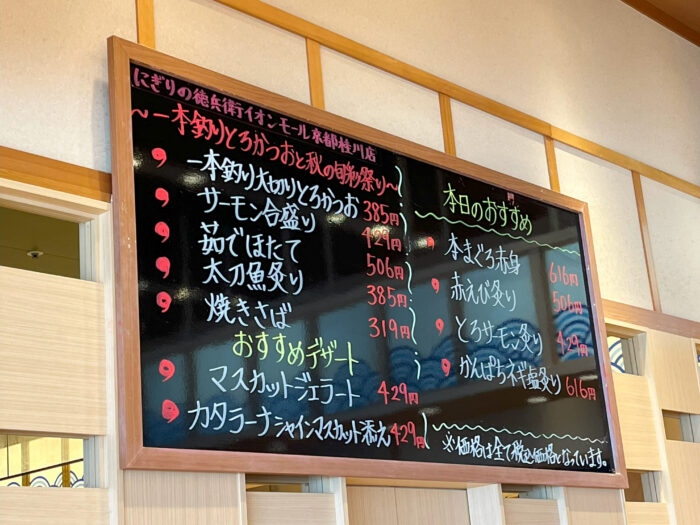 にぎりの徳兵衛イオンモール京都桂川店
～一本釣りとろかつおと秋の旬彩祭り～
一本釣り大切りとろかつお 385円
サーモン合盛り 429円
茹でほたて 506円
太刀魚炙り 385円
焼きさば 319円
おすすめデザート
マスカットジェラート 429円
カタラーナシャインマスカット添え 429円
本日のおすすめ
本まぐろ赤身 616円
赤えび炙り 506円
とろサーモン炙り 429円
かんぱちネギ塩炙り 616円
※価格は全て税込価格となっています。